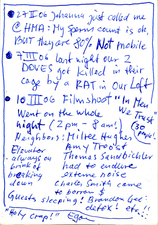 27 II 06 Johanna just called me
@ HMA: My sperms count is ok,
But they are 80% Not mobile
7 III 06 last night our 2
DOVES got killed in their
cage by a RAT in our Loft
10 III 06 Filmshoot "In Men
We Trust"
Went on the whole
night (2 pm - 8 am!) (30 Men)
Neighbors: Miltee Hughes
Elevator Amy Trodor
- always on Thomas Sandbichler
brink of had to endure
breaking extreme noise
down Charles Smith came
to borrow $
Guests sleeping! Brandon Gee:
detox! etc.!!
"Holy Crap!" Egon